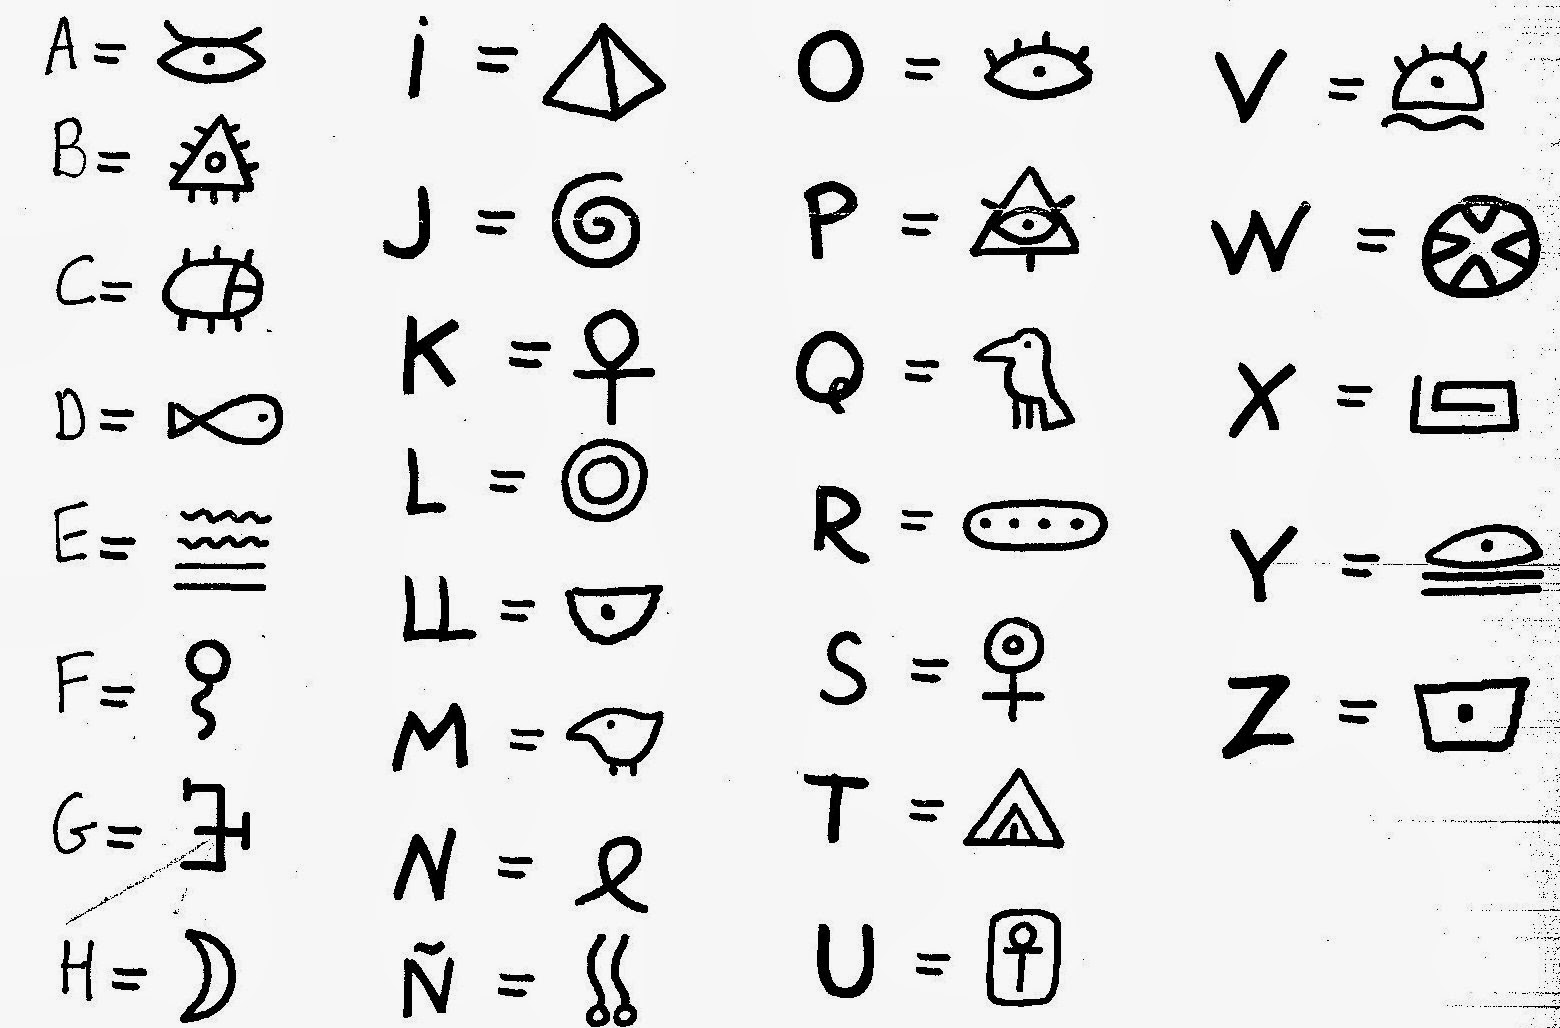 A =
B =
C =
D =
E =
F =
G =
H =
i =
J =
K =
L =
LL =
M =
N =
Ñ =
O =
P =
Q =
R =
S =
T =
U =
V =
W =
X =
Y =
Z =